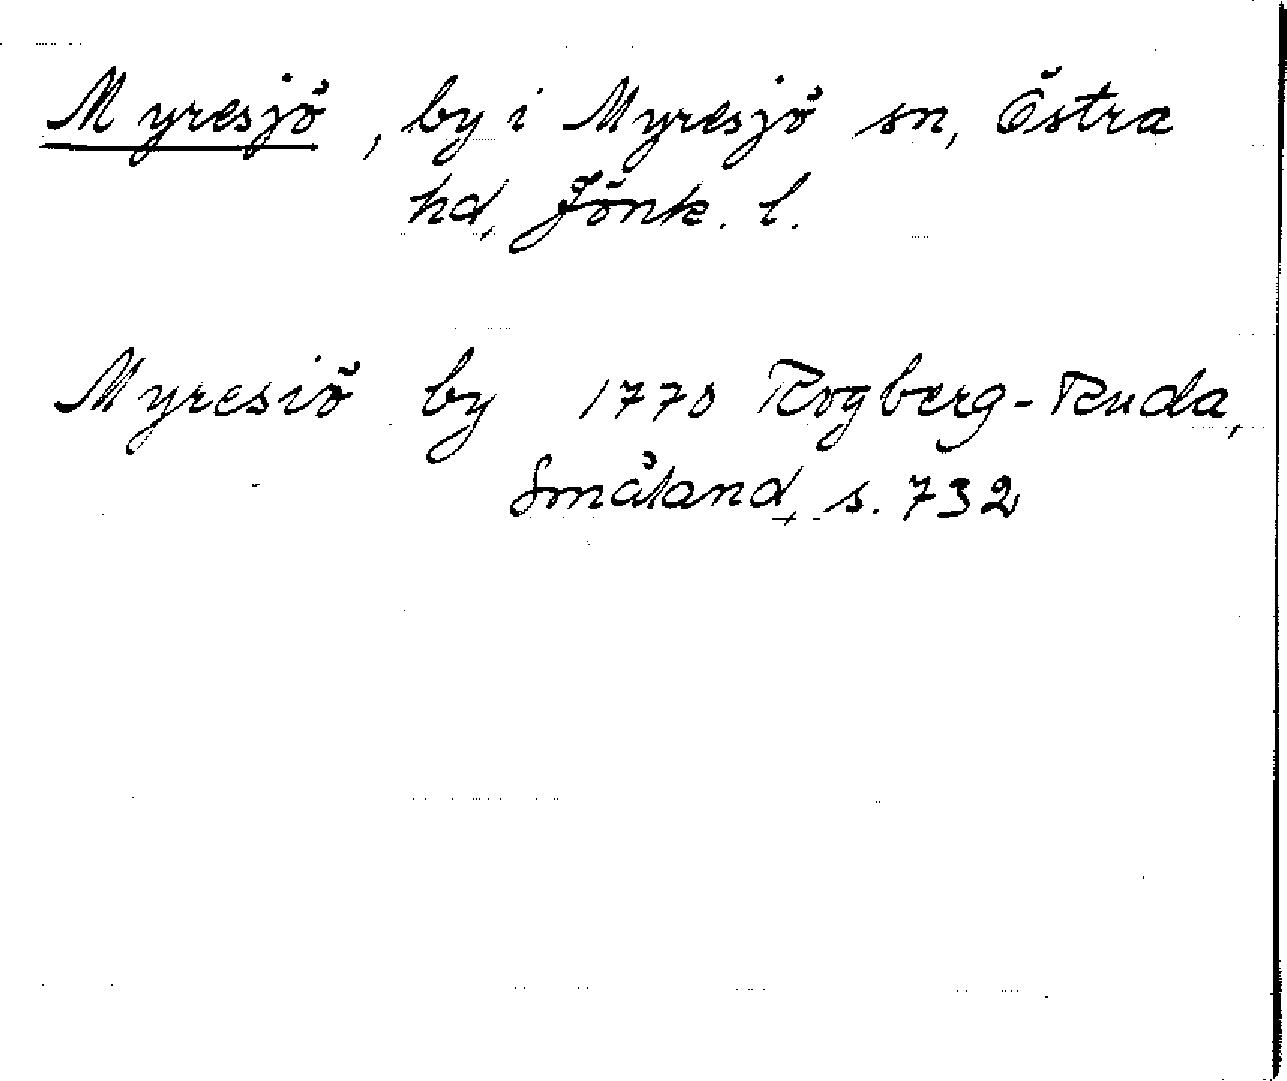 Myresjö, by i Myresjö sn, Östra
hd, Jönk. l.
Myresiö by 1770 Rogberg-Ruda,
Småland, s. 732